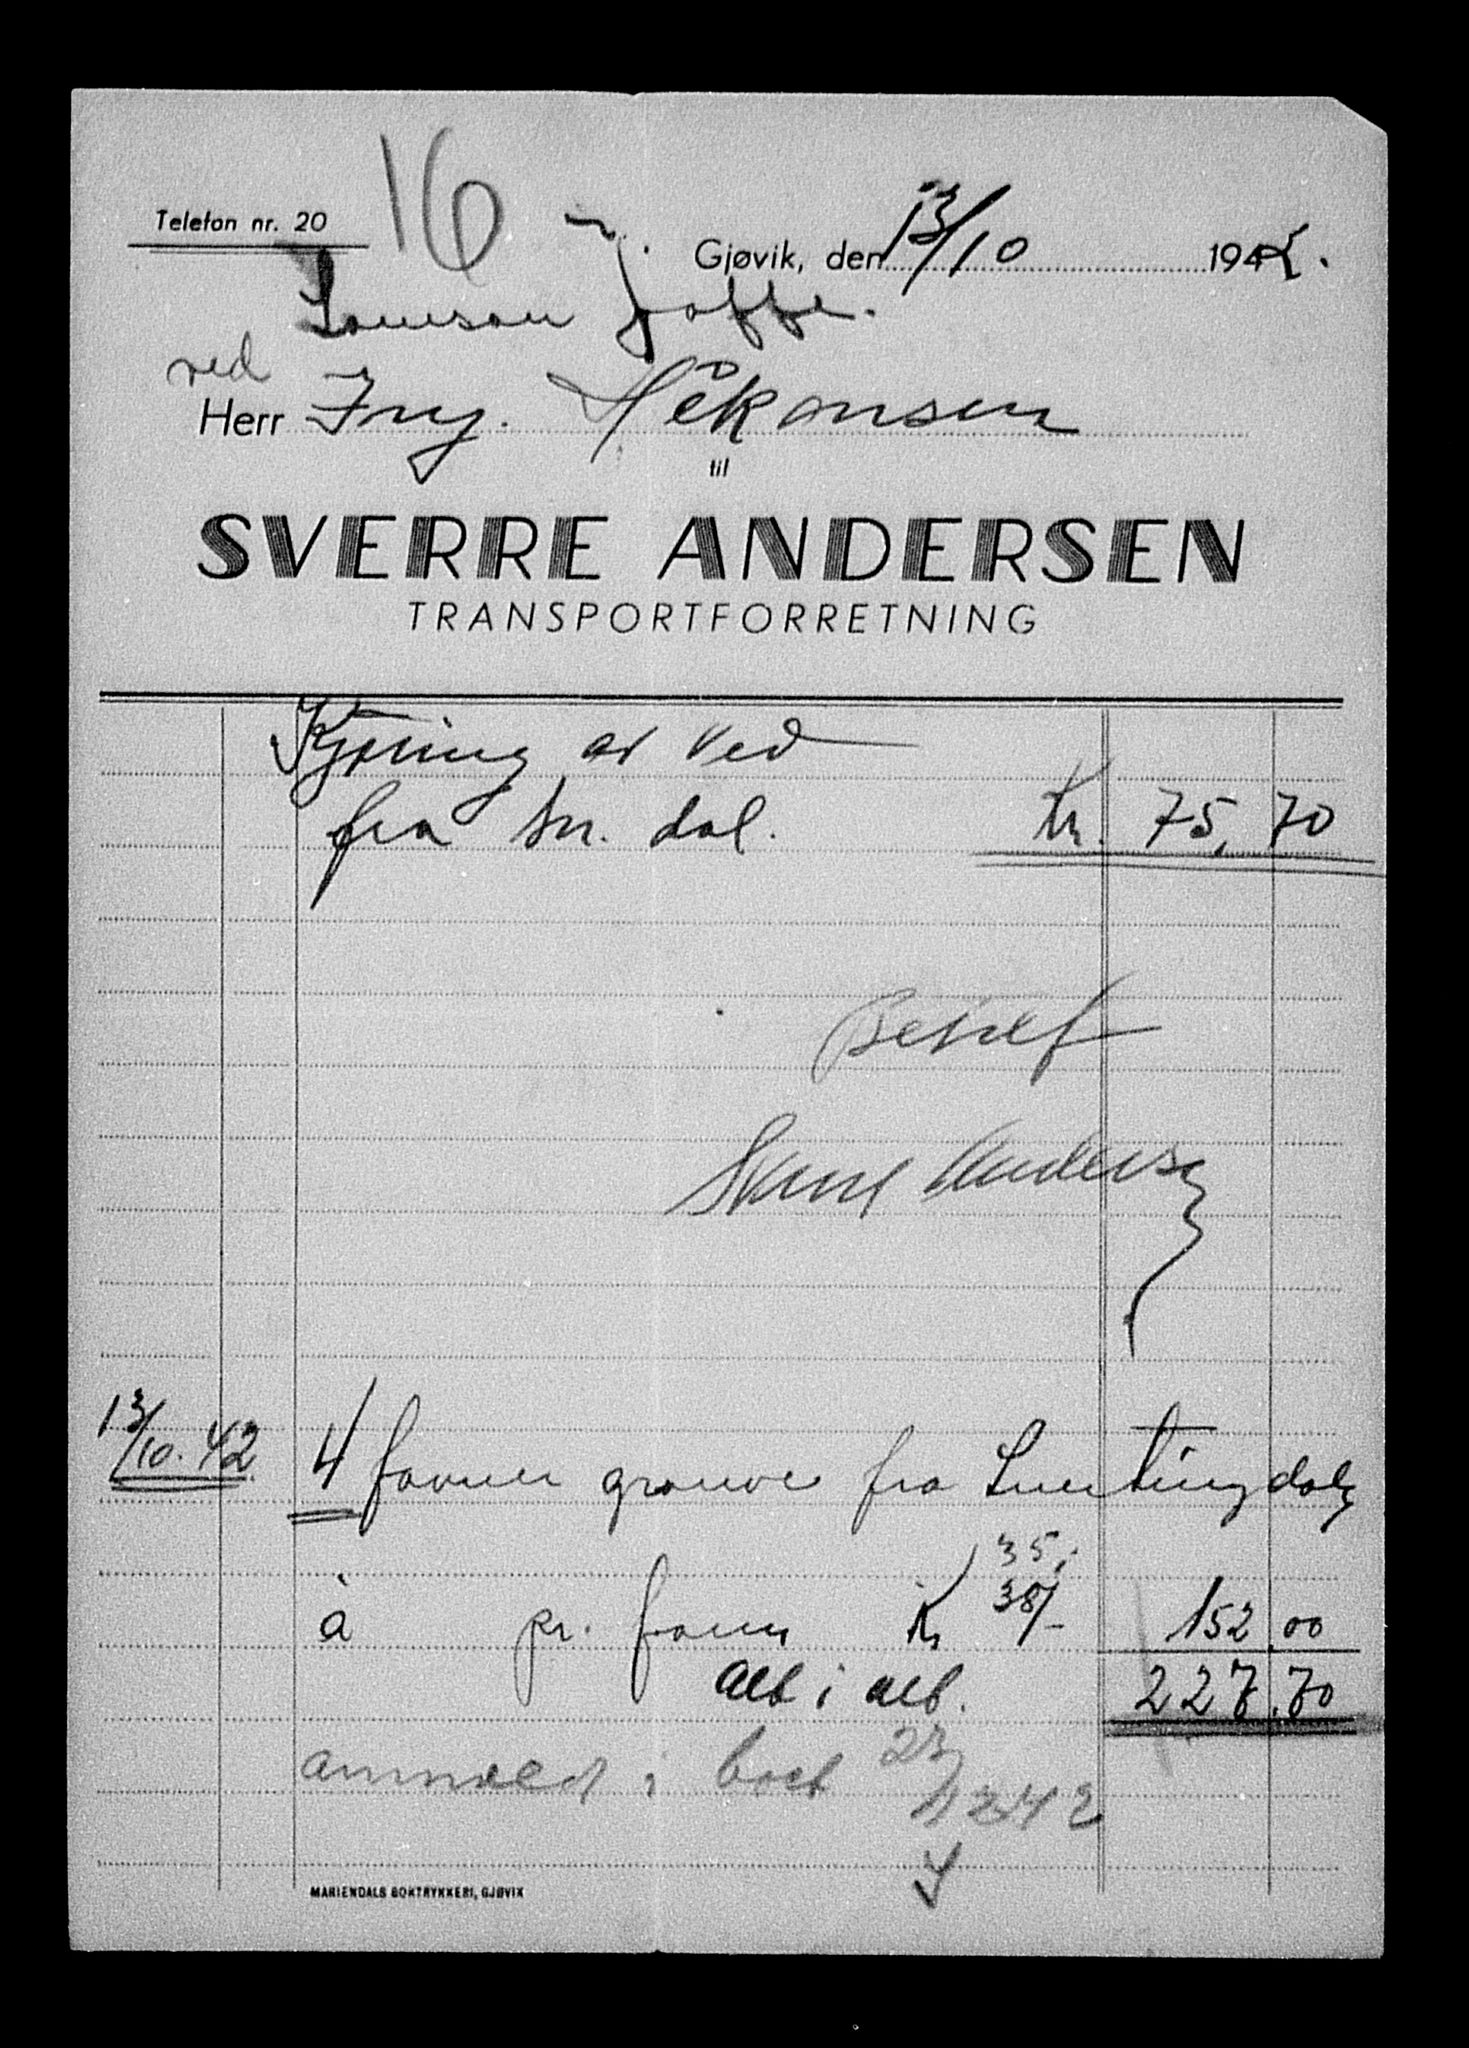 16
Telefon nr. 20
Gjøvik, den 13/10 1942.
Samson Joffe.
ved
Herr Ing. Håkonsen
til
SVERRE ANDERSEN
TRANSPORTFORRETNING
Kjøring av ved
fra Sn. dal. Kr. 75,70
Betalt
Sverre Andersen
13/10.42 4 favner granved fra Snertingdal
35,-
à pr. favn Kr 38/- 152.00
alt i alt. 227.70
anmeldt i boet 23/1242
MARIENDALS BOKTRYKKERI, GJØVIK